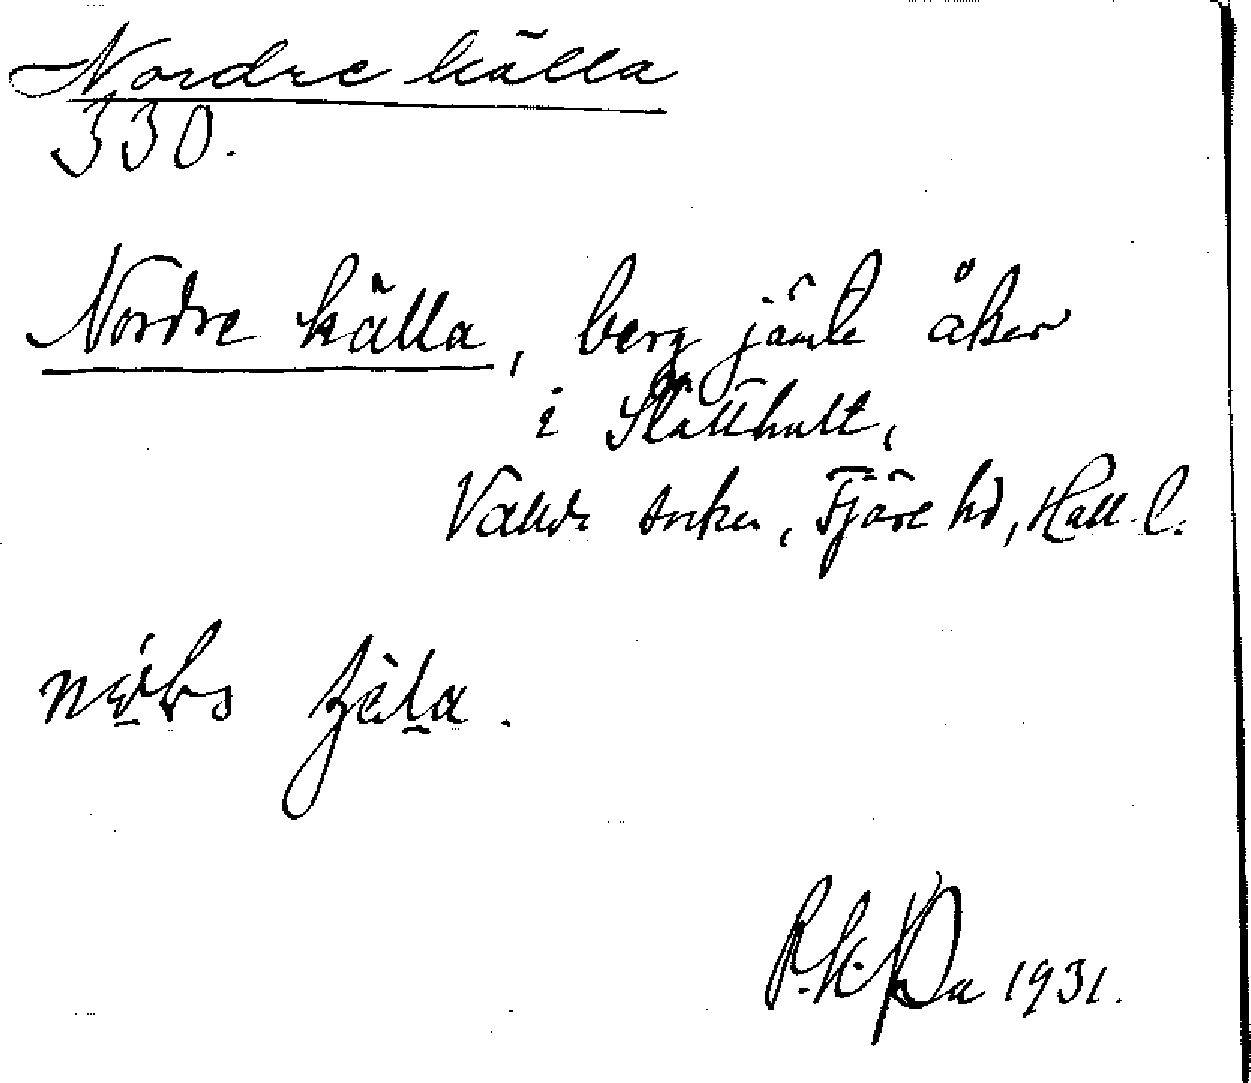 Nordre källa
330.
Nordre källa, berg jämte åker
i Slätthult,
Vallda socken, Fjäre hd, Hall. l.
1931.